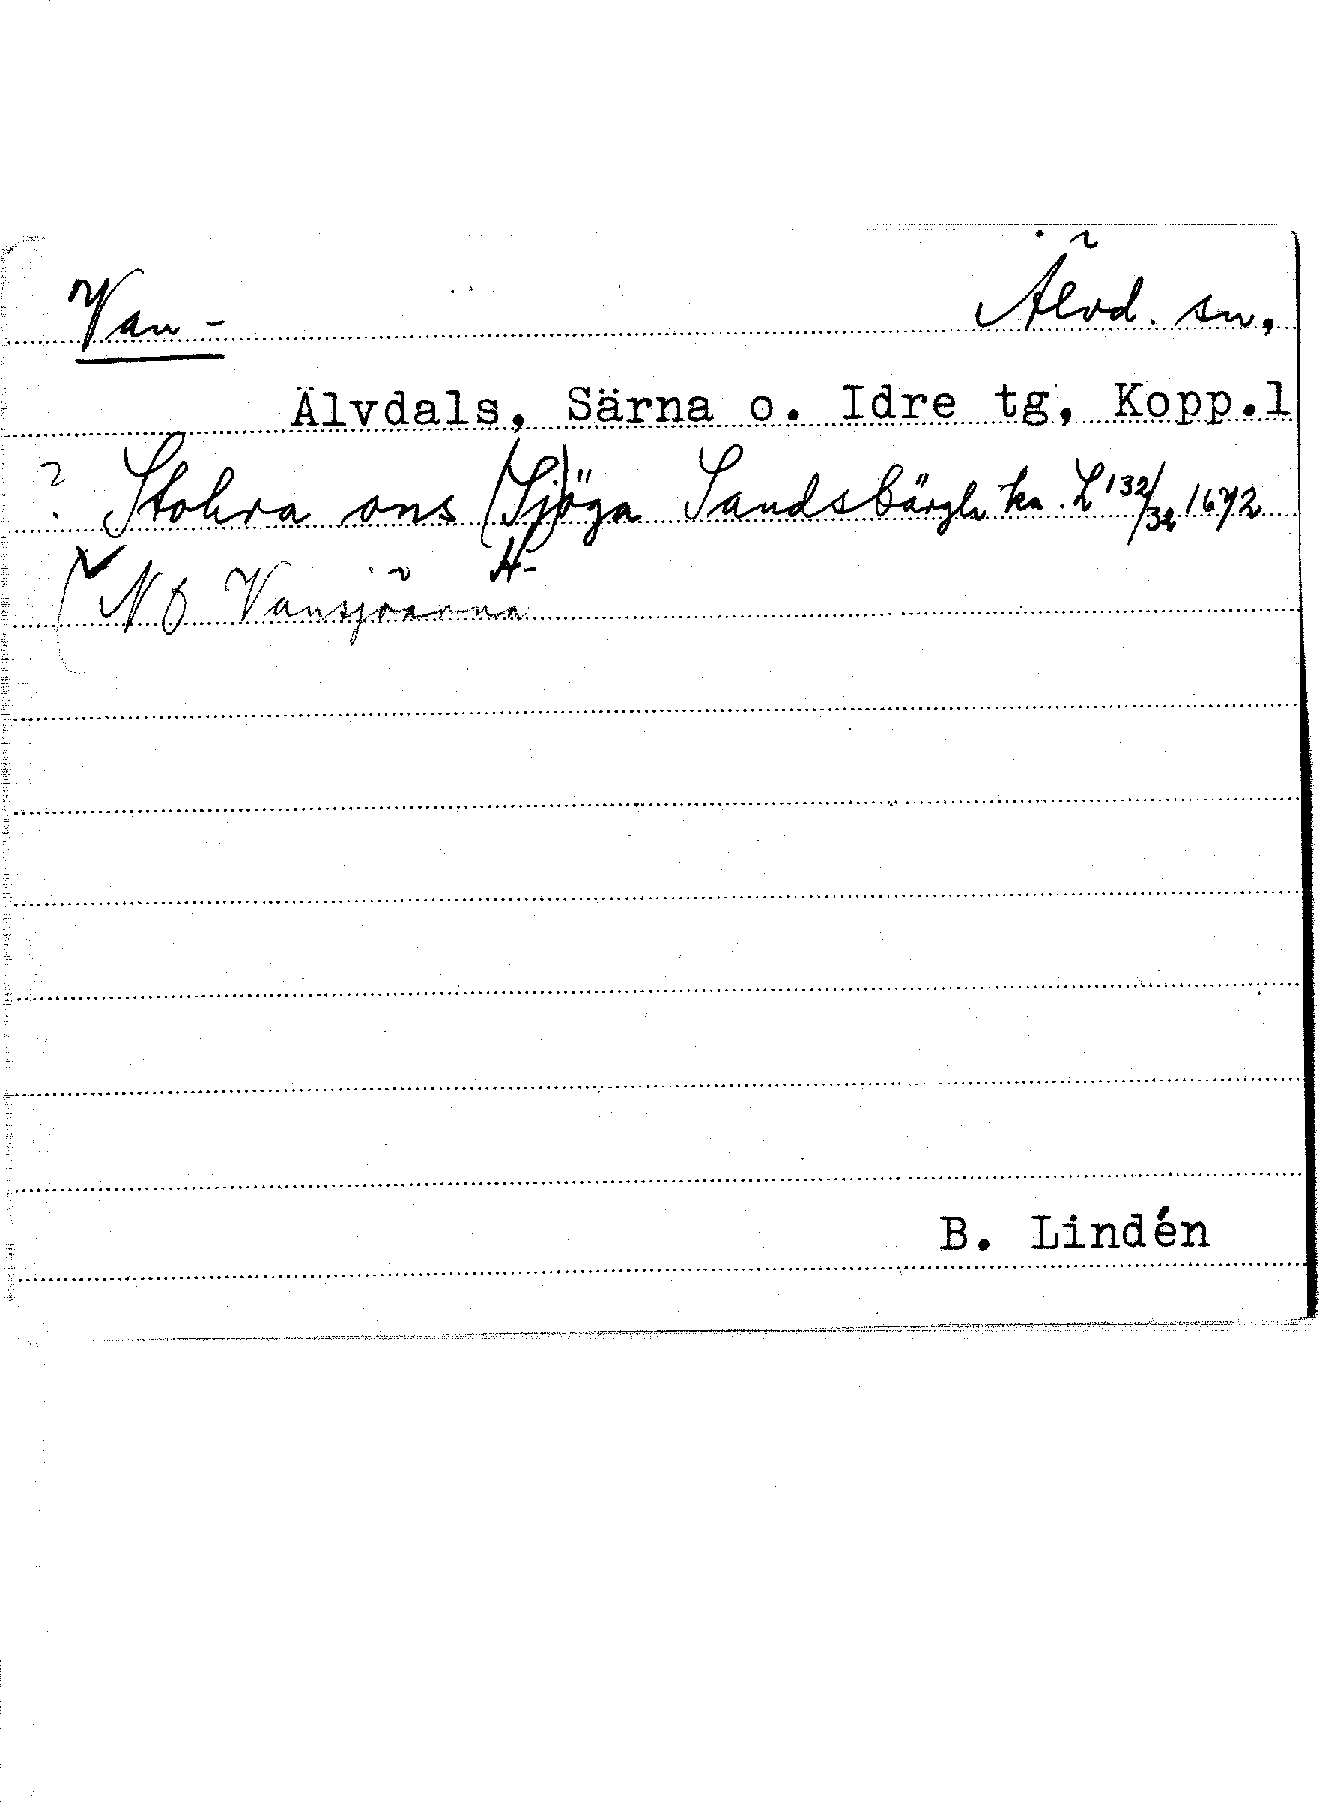 Van- Älvd. sn.
Älvdals, Särna o. Idre tg, Kopp.l
? Stohra ons (Sj)öga Sandsbärgh ka. L 132/32 1672
H-
(NO Vansjöarna
B. Lindén